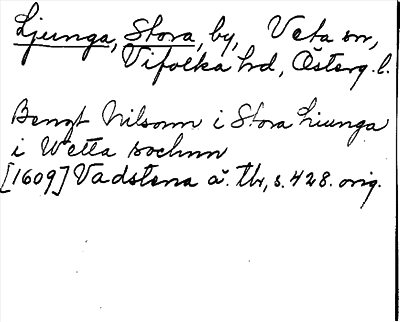 Ljunga, Stora, by, Veta sn,
Vifolka hd, Österg. l.
Bengt Nilsonn i Stora Liunga
i Wetta sochnn
[1609] Vadstena ä. tb, s. 428. orig.